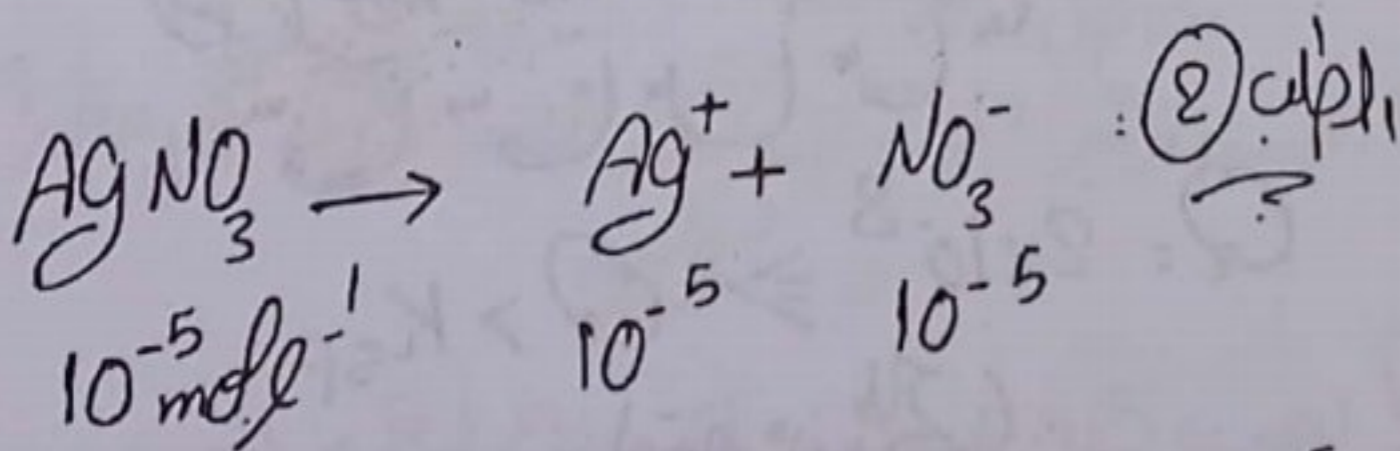 AgNO₃ → Ag⁺ + NO₃⁻ : ②
10⁻⁵ mol.l⁻¹ 10⁻⁵ 10⁻⁵